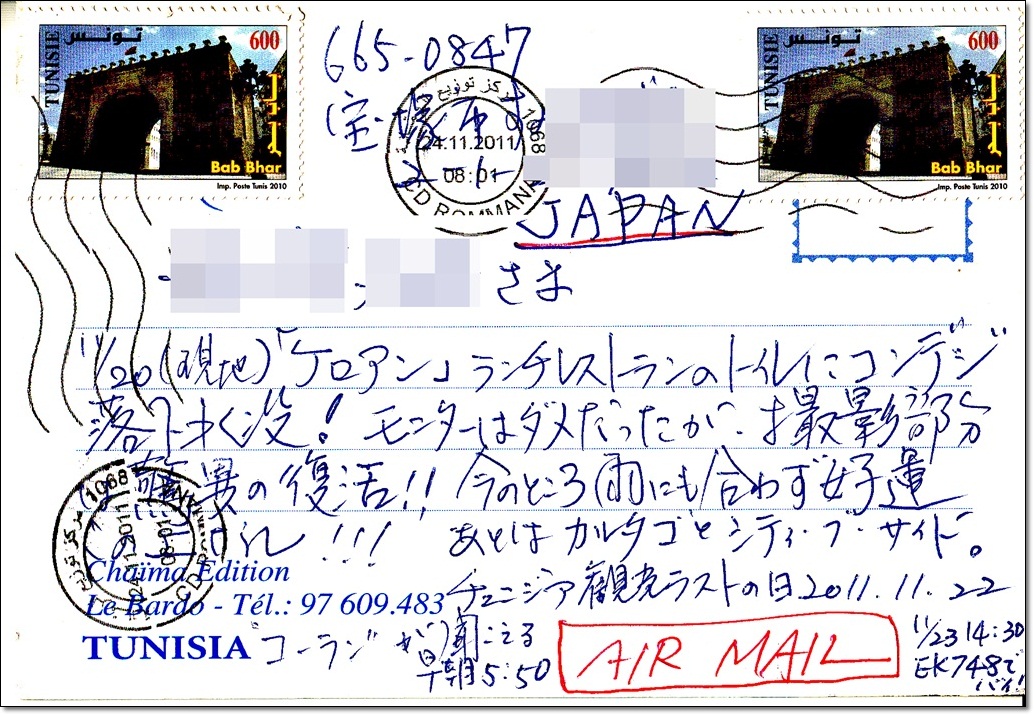 TUNISIE تونس 600
Bab Bhar
Imp. Poste Tunis 2010
TUNISIE تونس 600
Bab Bhar
Imp. Poste Tunis 2010
665-0847
宝塚市
مركز توزيع 1068
24.11.2011
08:01
CD ROMMANA
JAPAN
さま
11/20(現地)「ケロアン」ランチレストランのトイレにコンデジ
落下水没!モニターはダメだったが、撮影部分
の復活!!今のところ雨にも合わず好運
!!! あとはカルタゴとシティ・ブ・サイド。
Chaïma Edition
Le Bardo - Tél.: 97 609.483
TUNISIA
チュニジア観光ラストの日2011.11.22
"コーラン"が聞こえる
早朝5:50
AIR MAIL
11/23 14:30
EK748で
バイ!
1068
24.11.2011
08:01